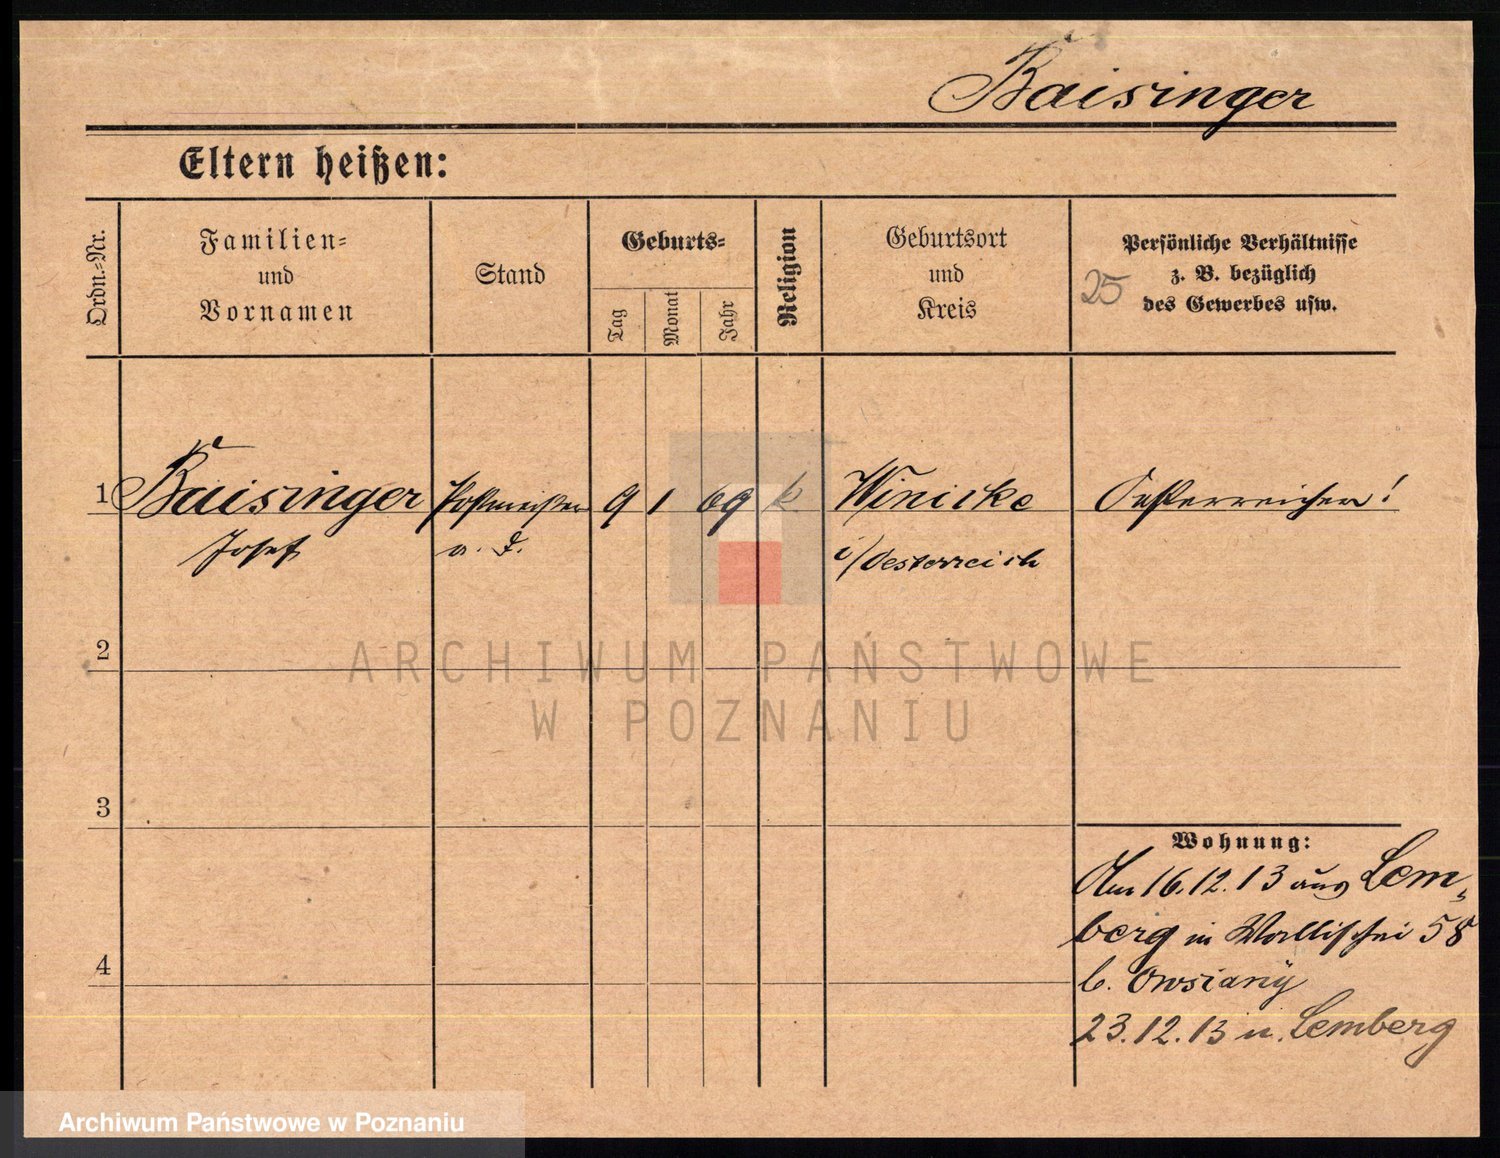 Baisinger
Eltern heißen:
Ordn.-Nr.
Familien-
und
Vornamen
Stand
Geburts-
Tag
Monat
Jahr
Religion
Geburtsort
und
Kreis
Persönliche Verhältnisse
z. B. bezüglich
des Gewerbes usw.
25
1 Baisinger Postmeister 9 1 69 k. Winicke Oesterreicher!
Josef a. D. i/Oesterreich
2
3
4
Wohnung:
Am 16.12.13 aus Lem-
berg in Wallischei 58
b. Owsiany
23.12.13 n. Lemberg
ARCHIWUM PAŃSTWOWE
W POZNANIU
Archiwum Państwowe w Poznaniu